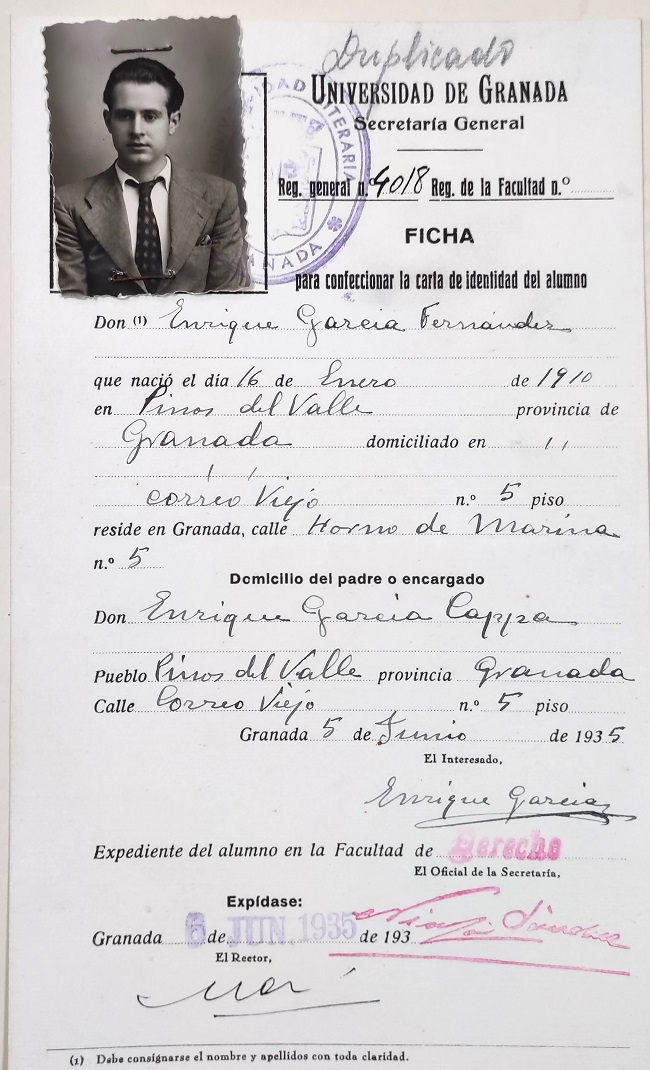 Duplicado
UNIVERSIDAD DE GRANADA
Secretaría General
Reg. general n.º 4018 Reg. de la Facultad n.º
FICHA
para confeccionar la carta de identidad del alumno
Don (1) Enrique García Fernández
que nació el día 16 de Enero de 1910
en Pinos del Valle provincia de
Granada domiciliado en ,,
,, ,,
Correo Viejo n.º 5 piso
reside en Granada, calle Horno de Marina
n.º 5
Domicilio del padre o encargado
Don Enrique García Cappa
Pueblo Pinos del Valle provincia Granada
Calle Correo Viejo n.º 5 piso
Granada 5 de Junio de 1935
El Interesado,
Enrique García
Expediente del alumno en la Facultad de Derecho
El Oficial de la Secretaría,
Expídase:
Granada 6 de JUN. 1935 de 193
Sánchez
El Rector,
(1) Debe consignarse el nombre y apellidos con toda claridad.